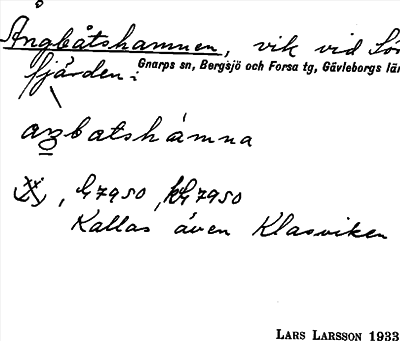 Ångbåtshamnen, vik vid Sör
fjärden:
Gnarps sn, Bergsjö och Forsa tg, Gävleborgs län
aŋbatshámna
, 47950, 47950
Kallas även Klasviken
LARS LARSSON 1933